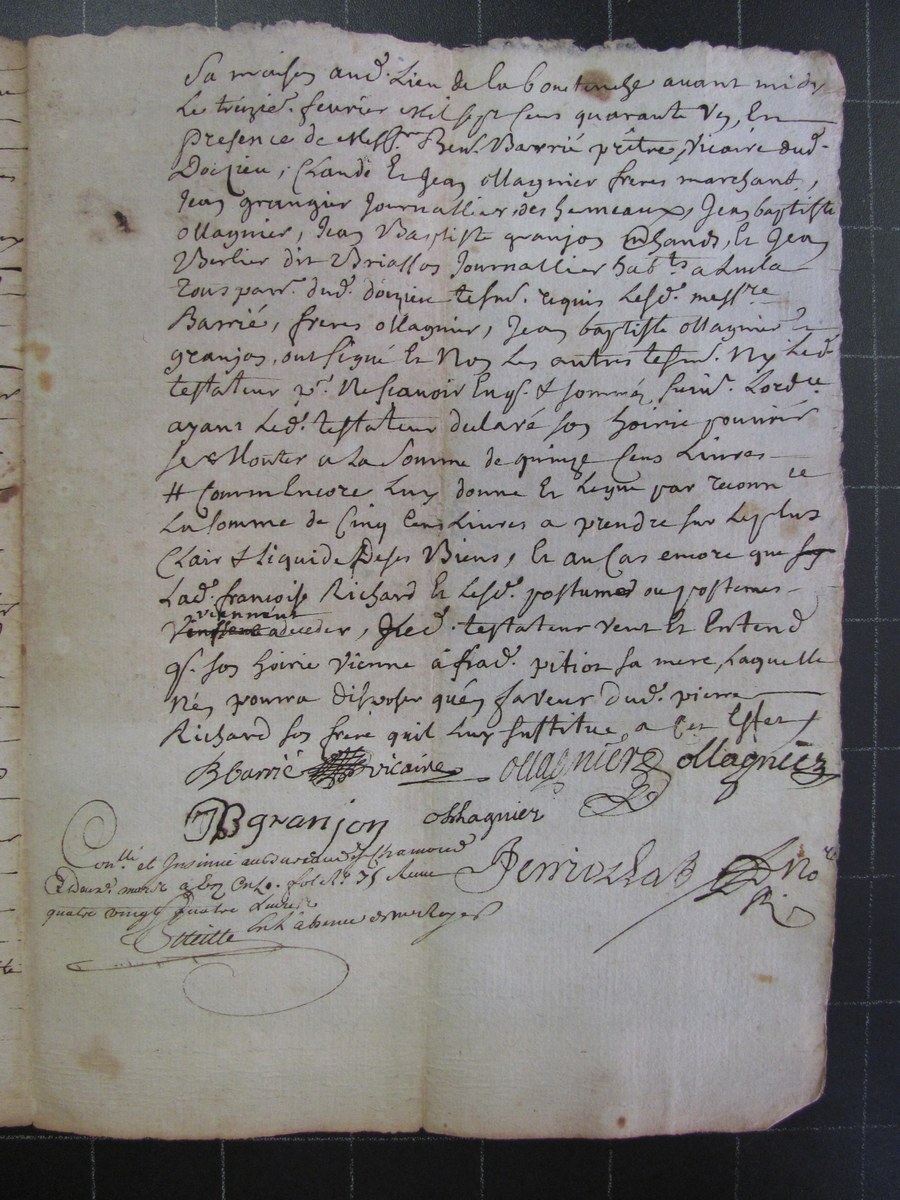 Sa maison aud. Lieu de la bontenche avant midy
Le trézie. fevrier Mil sept cens quarante Un, En
presence de Messre Ben. Barrié prêtre, Vicaire dud.
Doizieu, Claude Et Jean ollagnier freres marchant,
Jean grangier Journallier des hameaux, Jean baptiste
ollagnier, Jean Baptiste granjon mchands, Et Jean
Verlier dit Briassos Journallier habts a Luzla
Tous parr. dud. doizieu tesm. requis Lesd. messre
Barrié, freres ollagnier, Jean baptiste ollagnier Et
granjon, ont signé Et Non Les autres tesm. Ny Led.
testateur pr. Ne scavoir Enqs. & sommés suiv. Lordce
ayant Led. testateur declaré son hoirie pouvoir
se Monter a La Somme de quinze Cens Livres
# Comm Encore Luy donne Et Legue par reconnce
La somme de Cinq Cens Livres a prendre sur Le plus
Clair & Liquide De ses Biens, Et au Cas encore que
Lad. francoise Richard Et Lesd. postumes ou postumes
viennent
a deceder, Led. testateur veut Et Entend
q. son hoirie vienne à frad. pitiot sa mere, Laquelle
Nén pourra disposer quén faveur dud. pierre
Richard son frere quil Luy substitue, a Cet Effet
B Barrié vicaire ollagnier ollagnier
JB granjon ollagnier
Conllé et Insinué au bureau de St Chamond
quatre vingt quatre
En l'absence